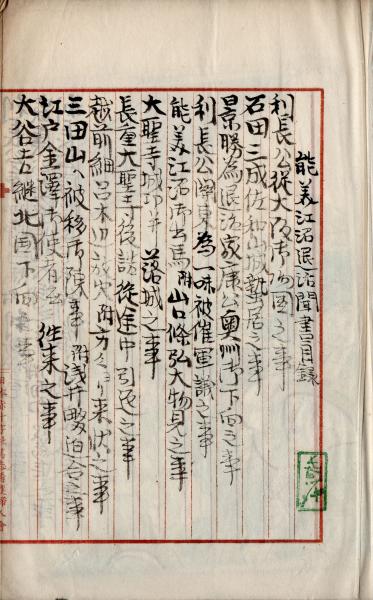 能美江沼退治聞書目録
利長公従大坂御帰国之事
石田三成佐和山城蟄居之事
景勝為退治家康公奥州御下向之事
利長公与東為一味被催軍議之事
能美江沼御出馬附山口條弘大物見之事
大聖寺城攻并落城之事
長重大聖寺後詰従途中引返之事
越前細呂木以放火附方々より来状之事
三田山へ被移御陣事附浅井畷迫合之事
江戸金澤御使者往来之事
大谷吉継北国下向